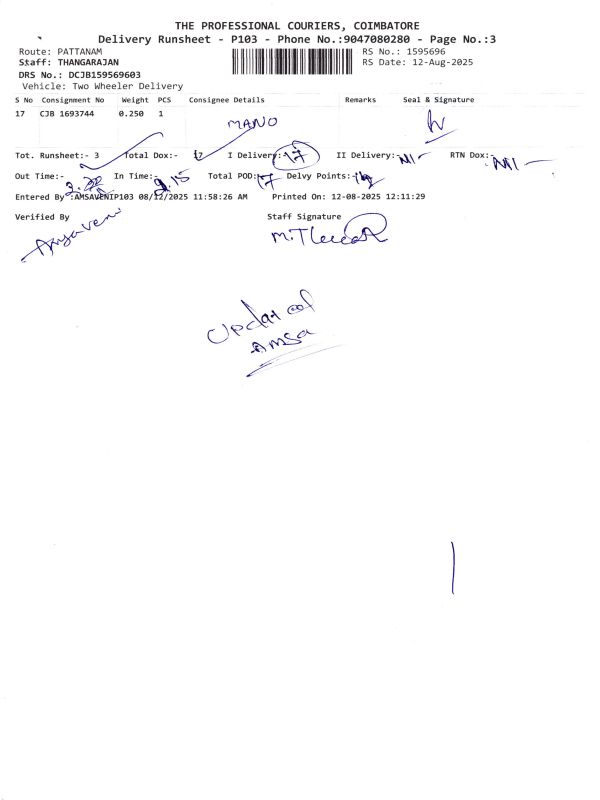 THE PROFESSIONAL COURIERS, COIMBATORE
Delivery Runsheet - P103 - Phone No.:9047080280 - Page No.:3
Route: PATTANAM RS No.: 1595696
Staff: THANGARAJAN RS Date: 12-Aug-2025
DRS No.: DCJB159569603
Vehicle: Two Wheeler Delivery
S No Consignment No Weight PCS Consignee Details Remarks Seal & Signature
17 CJB 1693744 0.250 1 MANO
Tot. Runsheet:- 3 Total Dox:- 17 I Delivery:- 17 II Delivery:- NI- RTN Dox:-
Out Time:- In Time:- 9.15 Total POD:- 17 Delvy Points:-
Entered By :AMSAVENIP103 08/12/2025 11:58:26 AM Printed On: 12-08-2025 12:11:29
Verified By Staff Signature
Amsaveni
Updated
Amsa